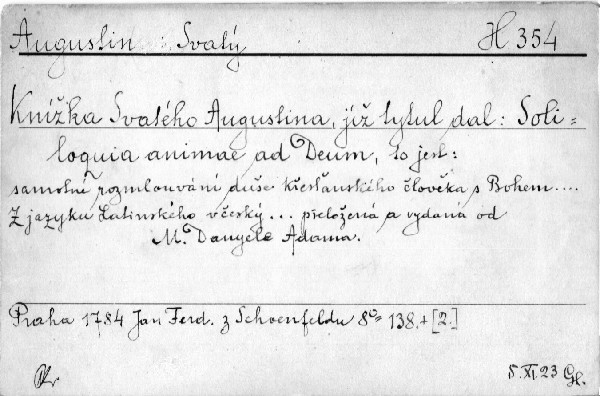 Augustin Svatý H 354
Knížka Svatého Augustina, jíž tytul dal: Soli-
loquia animae ad Deum, to jest:
samotní rozmlouvání duše křesťanského člověka s Bohem....
Z jazyku Latinského včeský... přeložená a vydaná od
M. Danyele Adama.
Praha 1784 Jan Ferd. z Schoenfeldu 8° 138.+[2.]
5.XI.23 Gl.